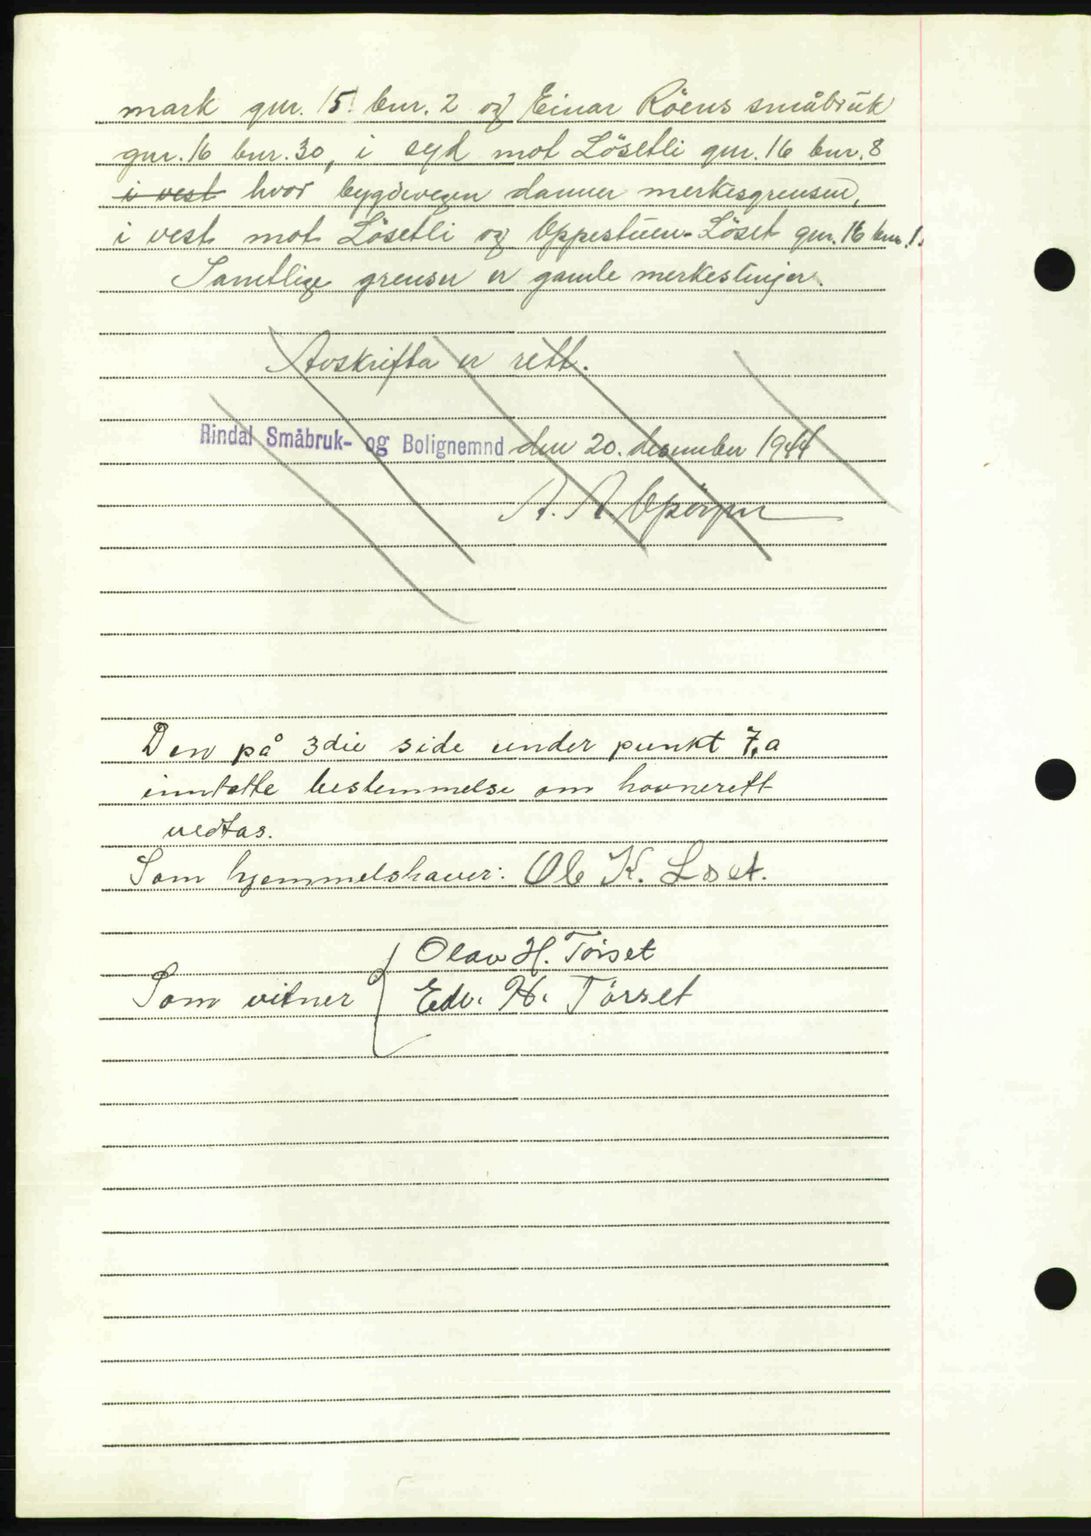 mark gnr. 15 bnr. 2 og Einar Röens småbruk
gnr. 16 bnr. 30, i syd mot Lösetli gnr. 16 bnr. 8
i vest hvor bygdevegen danner merkesgrensen,
i vest mot Lösetli og Oppestuen-Löset gnr. 16 bnr. 1.
Samtlige grenser er gamle merkeslinjer.
Avskrifta er rett.
Rindal Småbruk- og Bolignemnd den 20. desember 1944
A. A.
Den på 3die side under punkt 7,a
inntatte bestemmelse om havnerett
vedtas.
Som hjemmelshaver: Ole K. Løset.
Olav H. Törset
Som vitner Edv. H. Törset